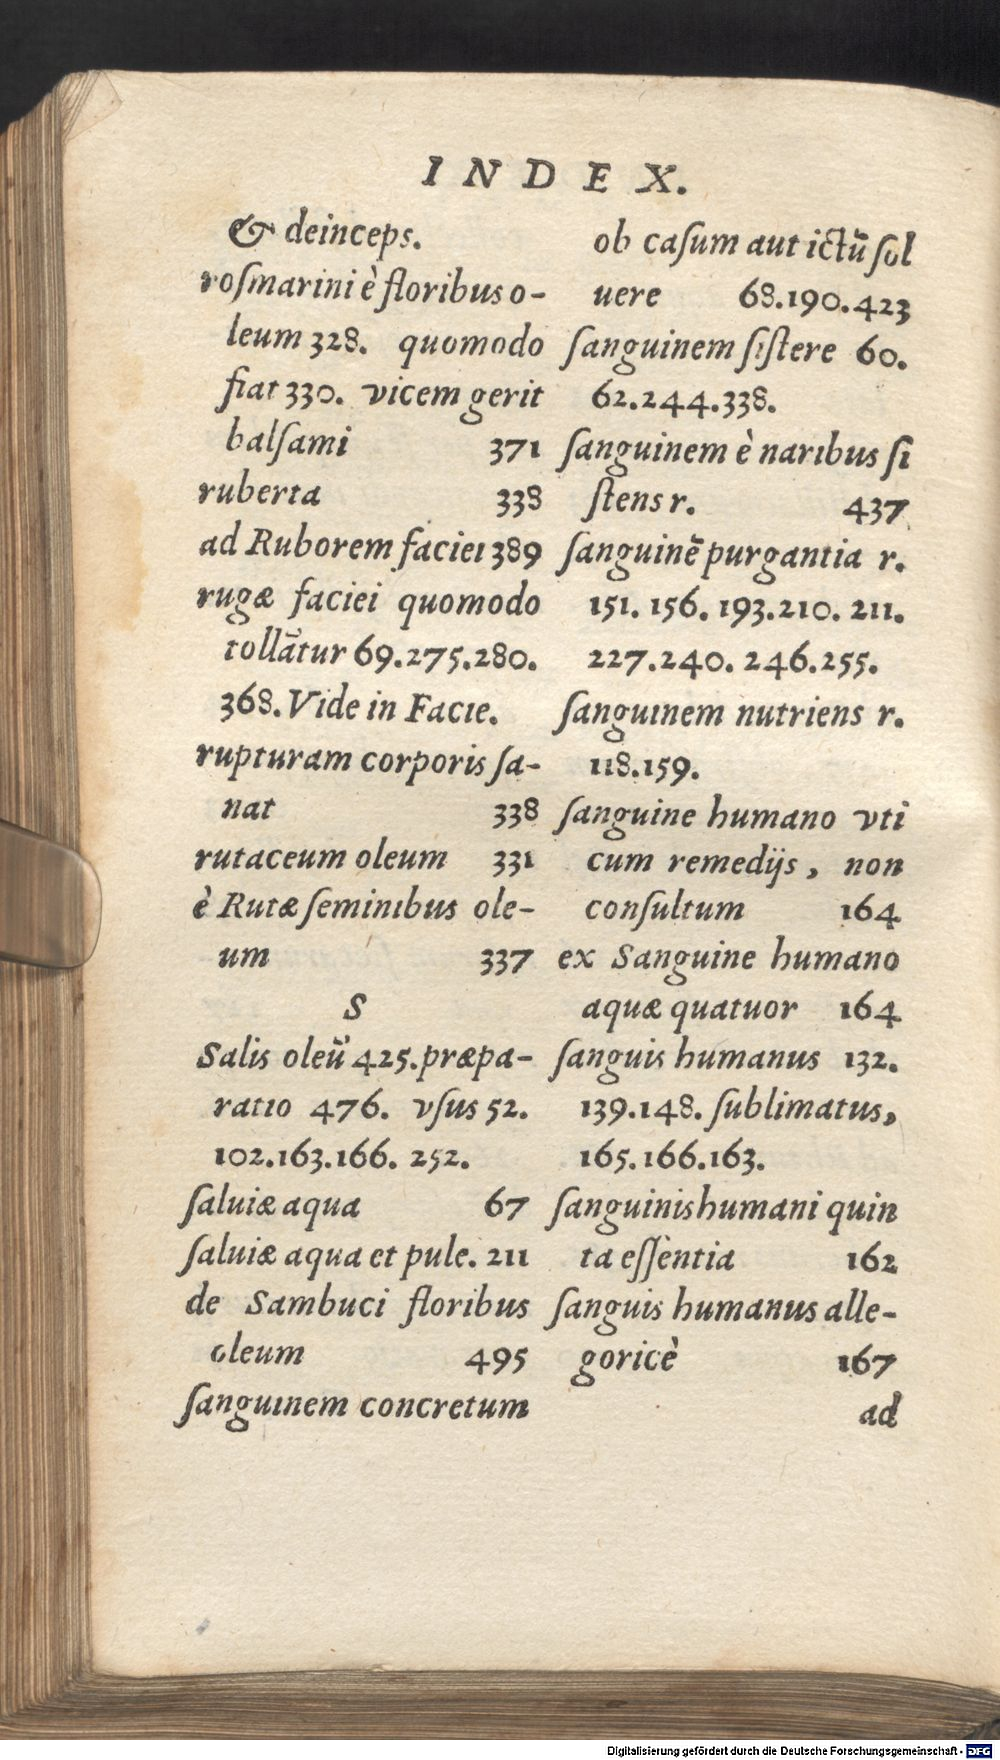 INDEX.
& deinceps.
rosmarini è floribus o-
leum 328. quomodo
fiat 330. vicem gerit
balsami 371
ruberta 338
ad Ruborem faciei 389
rugæ faciei quomodo
tollãtur 69.275.280.
368. Vide in Facie.
rupturam corporis sa-
nat 338
rutaceum oleum 331
è Rutæ seminibus ole-
um 337
S
Salis oleũ 425. præpa-
ratio 476. vsus 52.
102.163.166. 252.
saluiæ aqua 67
saluiæ aqua et pule. 211
de Sambuci floribus
oleum 495
sanguinem concretum
ob casum aut ictũ sol
uere 68.190.423
sanguinem sistere 60.
62.244.338.
sanguinem è naribus si
stens r. 437
sanguinē purgantia r.
151. 156. 193.210. 211.
227.240. 246.255.
sanguinem nutriens r.
118.159.
sanguine humano vti
cum remedijs, non
consultum 164
ex Sanguine humano
aquæ quatuor 164
sanguis humanus 132.
139.148. sublimatus,
165.166.163.
sanguinis humani quin
ta essentia 162
sanguis humanus alle-
goricè 167
ad
Digitalisierung gefördert durch die Deutsche Forschungsgemeinschaft - DFG